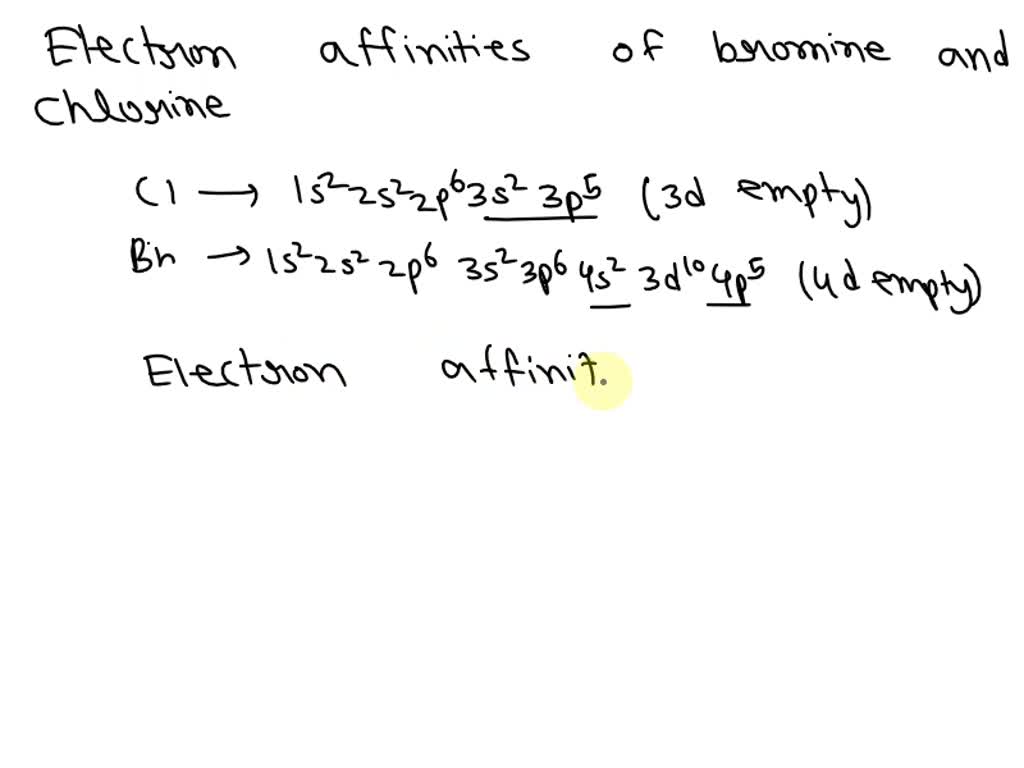 Electron affinities of bromine and
chlorine
Cl → 1s²2s²2p⁶3s² 3p⁵ (3d empty)
Br → 1s²2s² 2p⁶ 3s²3p⁶ 4s² 3d¹⁰ 4p⁵ (4d empty)
Electron affinit